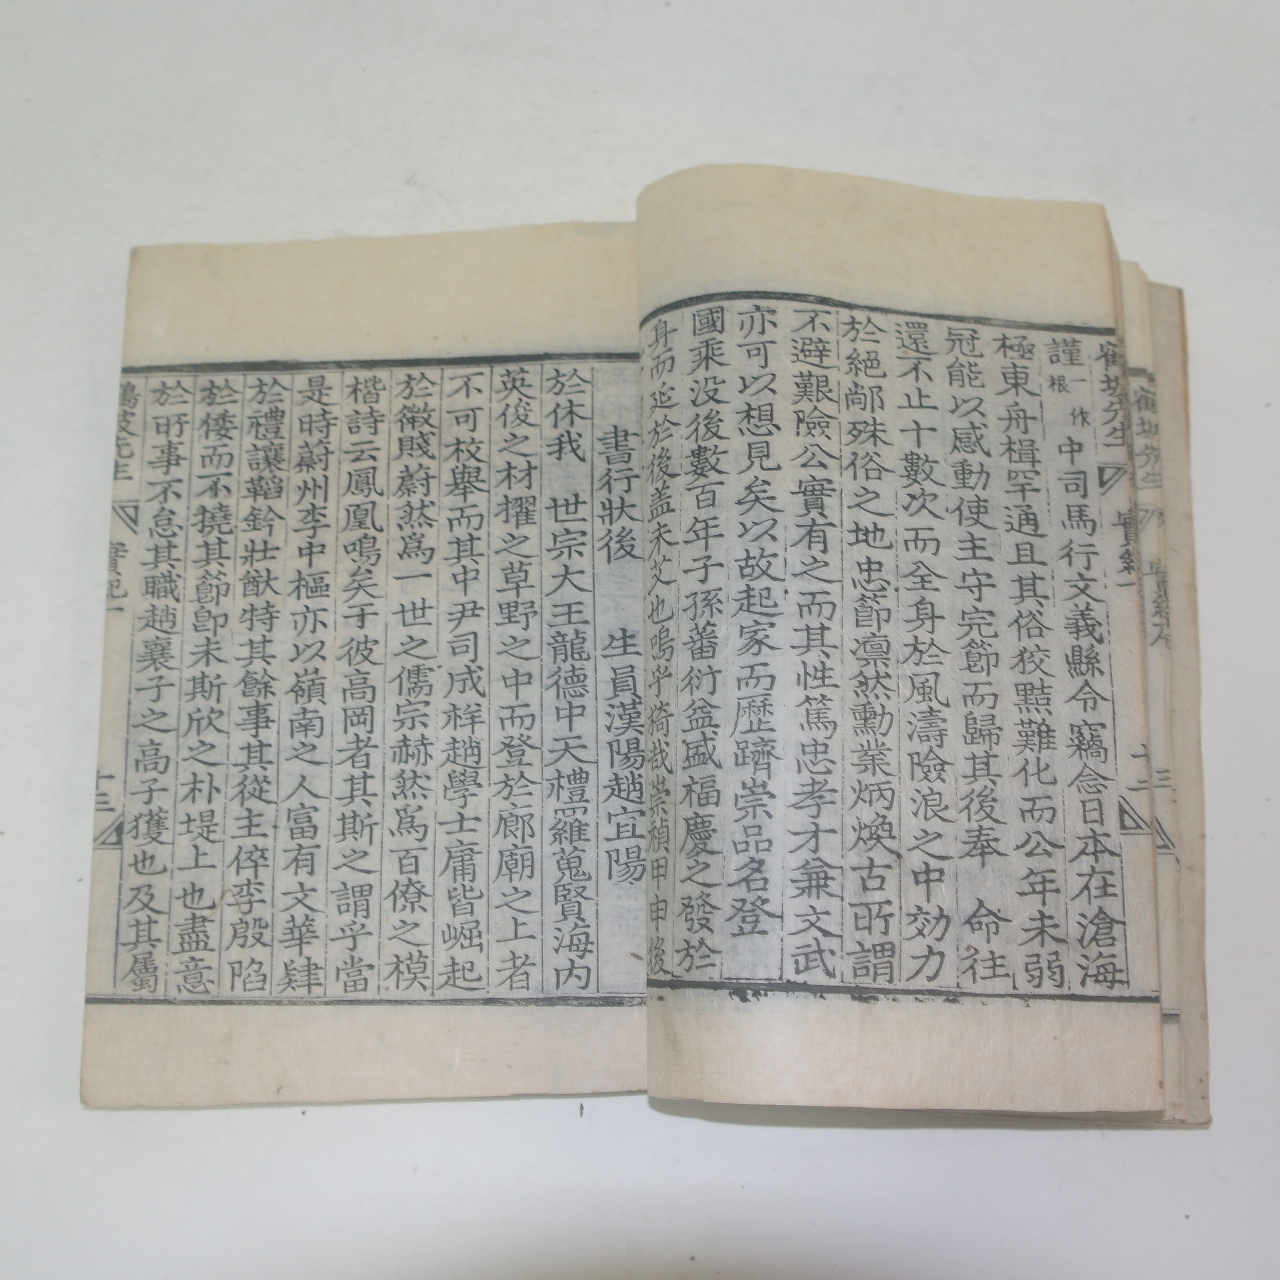 鶴坡先生 實紀一 十二
謹一作根中司馬行文義縣令竊念日本在滄海
極東舟楫罕通且其俗狡黠難化而公年未弱
冠能以感動使主守完節而歸其後奉 命往
還不止十數次而全身於風濤險浪之中効力
於絕鄙殊俗之地忠節凛然勳業炳煥古所謂
不避艱險公實有之而其性篤忠孝才兼文武
亦可以想見矣以故起家而歷躋崇品名登
國乘没後數百年子孫蕃衍益盛福慶之發於
身而延於後盖未艾也嗚乎猗哉崇禎甲申後
書行狀後 生員漢陽趙宜陽
於休我 世宗大王龍德中天禮羅蒐賢海内
英俊之材擢之草野之中而登於廊廟之上者
不可枚舉而其中尹司成祥趙學士庸皆崛起
於微賤蔚然爲一世之儒宗赫然爲百僚之模
楷詩云鳳凰鳴矣于彼高岡者其斯之謂乎當
是時蔚州李中樞亦以嶺南之人富有文華肄
於禮讓韜鈐壯猷特其餘事其從主倅李殷陷
於倭而不撓其節卽未斯欣之朴堤上也盡意
於所事不怠其職趙襄子之高子獲也及其屬
鶴坡先生 實紀一 十三